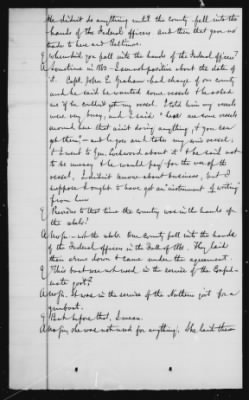 He didn't do anything until the county fell into the
hands of the Federal officers and then that you no
trade to here and Baltimore.
Q When did you fall into the hands of the Federal officers?
A Sometime in 1861. I am not positive about the date of
it. Capt. John E. Graham had charge of our county
and he said he wanted some vessels & he asked
me if he couldn't get my vessel. I told him my vessels
were very busy, and I said "there are some vessels
around here that aint doing anything, & you can
get them" and he goes and takes my vessel;
& I went to Gen. Lockwood about it & he said not
to be uneasy & he would pay for the use of the
vessel, I didn't know about business, but I
suppose I ought to have got an instrument of writing
from him
Q Previous to that time the county was in the hands of
the rebels?
A No sir - not the rebels. Our County fell into the hands
of the Federal officers in the Fall of 1861. They laid
their arms down & came under the agreement.
Q This boat was not used in the service of the Confed-
erate govt?
A No sir. It was in the service of the Northern govt for a
gunboat.
Q But before that, I mean.
A No sir, she was not used for anything. She laid there